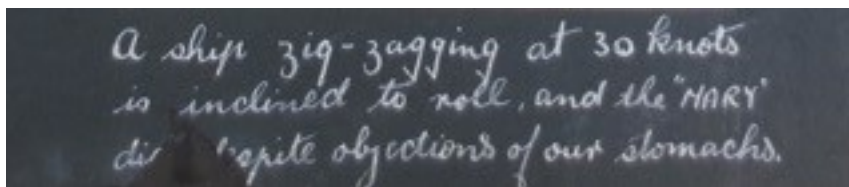 A ship zig-zagging at 30 knots
is inclined to roll, and the "MARY"
objections of our stomachs.